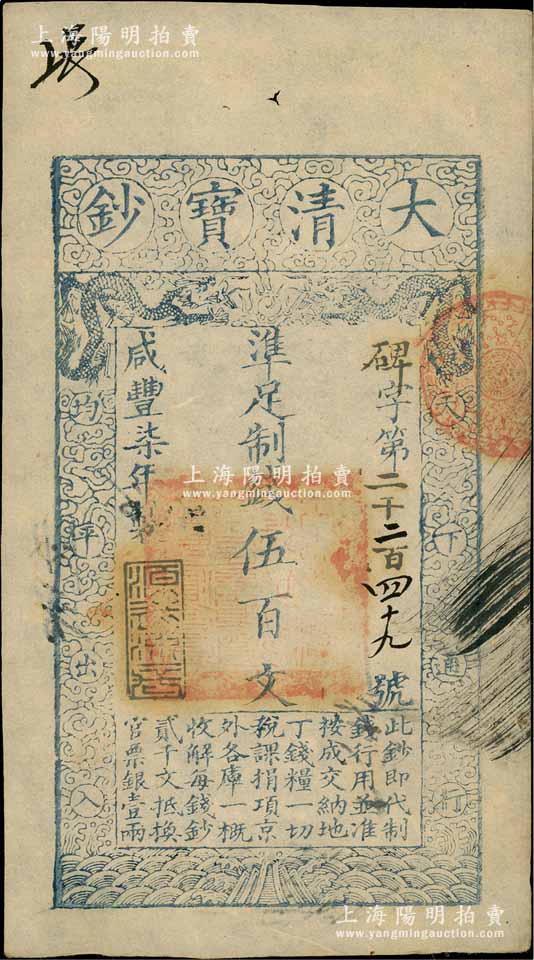 上海陽明拍賣
www.yangmingauction.com
大清寶鈔
天下通行
均平出入
碑字第二千二百四十九號
準足制錢伍百文
咸豐柒年製
此鈔即代制
錢行用並准
按成交納地
丁錢糧一切
稅課捐項京
外各庫一概
收解每錢鈔
貳千文抵換
官票銀壹兩
上海陽明拍賣
www.yangmingauction.com
上海陽明拍賣
www.yangmingauction.com